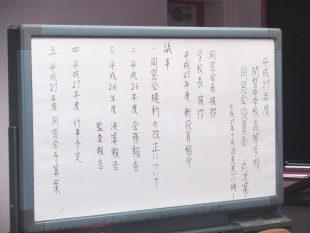 平成27年度
開智中学校・高等学校
同窓会役員会 式次第
同窓会長挨拶
学校長挨拶
平成27年度 新役員紹介
議事
一 同窓会規約の改正について
二 平成26年度 会務報告
三 平成26年度 決算報告
監査報告
四 平成27年度 行事予定
五 平成27年度 同窓会予算案